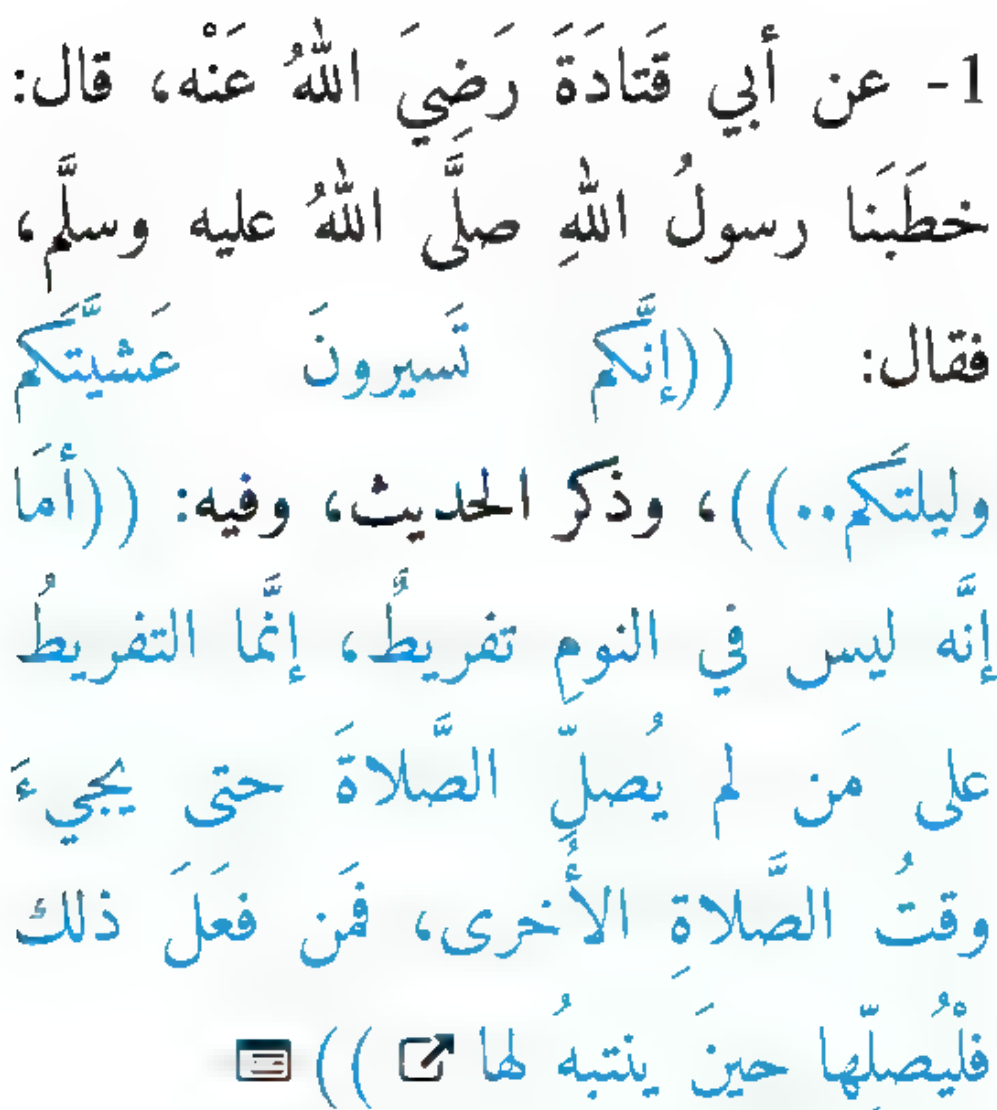 1- عن أبي قَتادَةَ رَضِيَ اللهُ عَنْه، قال:
خطَبَنا رسولُ اللهِ صلَّى اللهُ عليه وسلَّم،
فقال: ((إنَّكم تَسيرونَ عَشيَّتَكم
وليلتَكم..))، وذكَر الحديث، وفيه: ((أمَا
إنَّه ليس في النومِ تفريطٌ، إنَّما التفريطُ
على مَن لم يُصلِّ الصَّلاةَ حتى يجيءَ
وقتُ الصَّلاةِ الأُخرى، فمَن فعَلَ ذلك
فلْيُصلِّها حينَ ينتبهُ لها ))